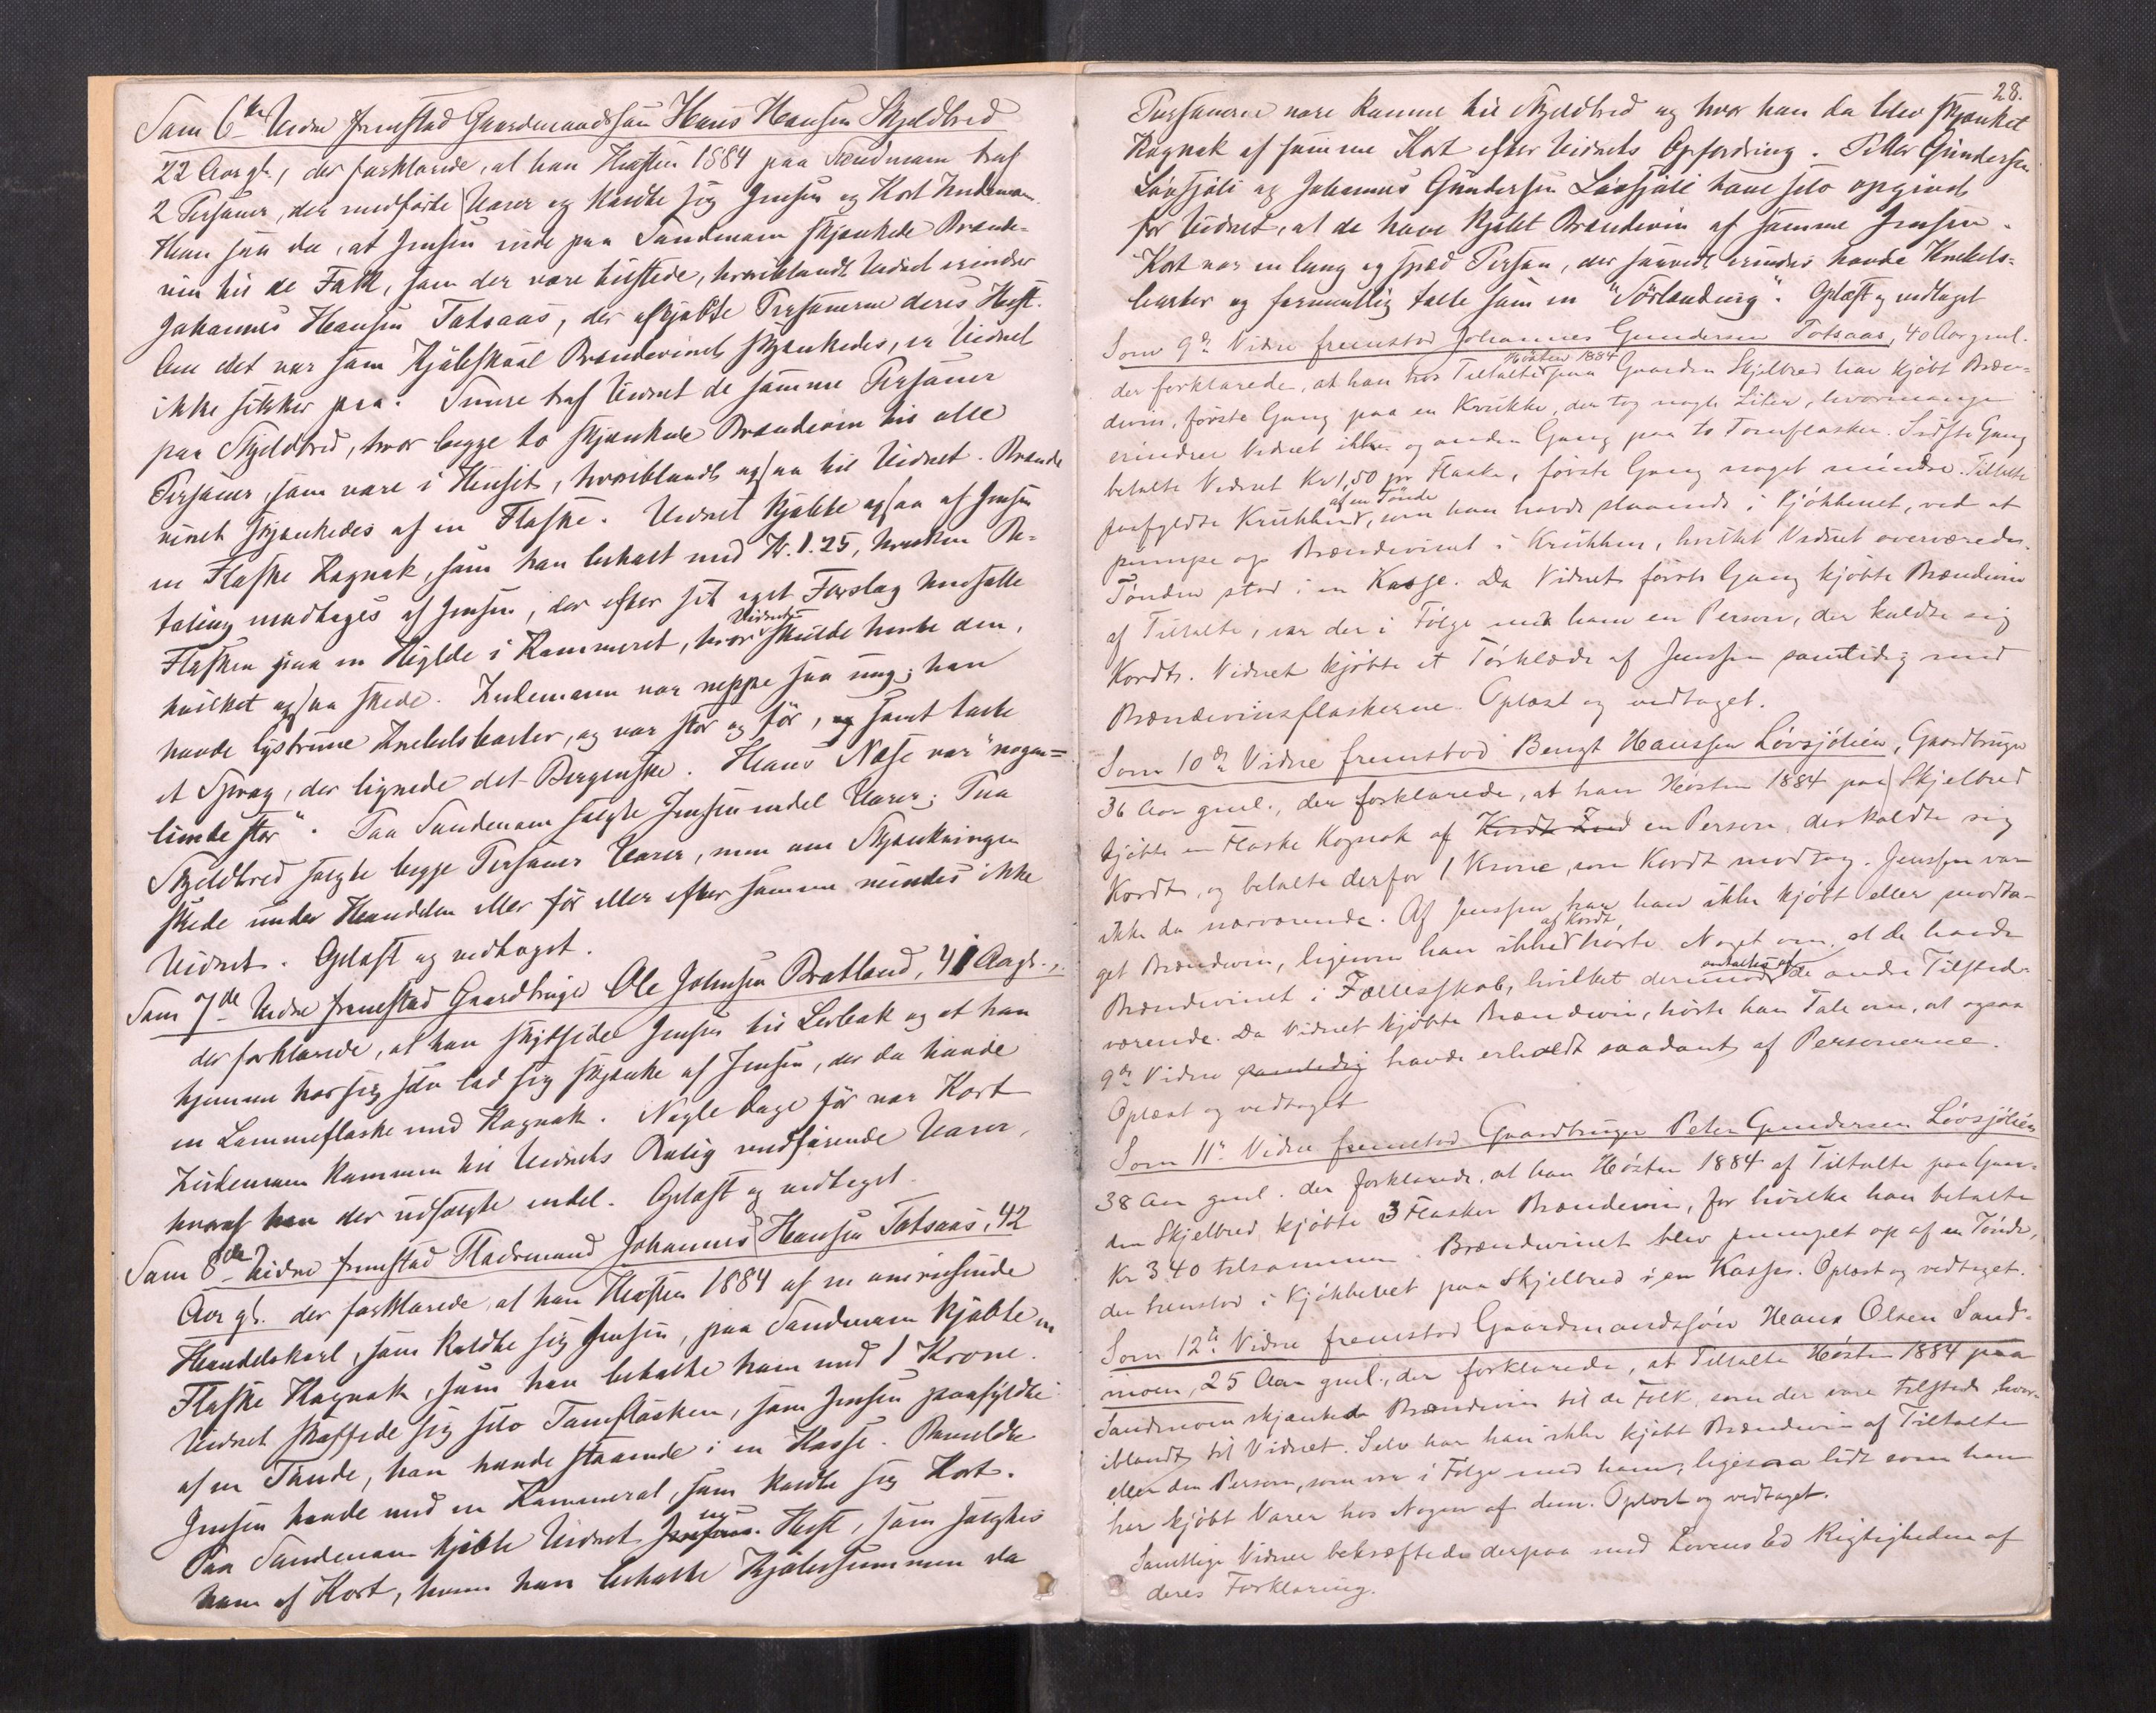 Som 6te Vidne fremstod Gaardmandssøn Hans Hansen Skjeldbred
22 Aar gl., der forklarede, at han Høsten 1884 paa Sandmoen traf
2 Personer, der medførte Varer og kaldte sig Jensen og Kort Zindeman.
Han saa da, at Jensen inde paa Sandmoen skjænkede Brænde-
vin til de Folk, som der vare tilstede, hvoriblandt Vidnet erindrer
Johannes Hansen Totsaas, der afkjøbte Personerne deres Hest.
Om det var som Kjøbskaal Brændevinet skjænkedes, er Vidnet
ikke sikker paa. Senere traf Vidnet de samme Personer
paa Skjeldbred, hvor begge to skjænkede Brændevin til alle
Personer, som vare i Huset, hvoriblandt ogsaa til Vidnet. Brænde
vinet skjænkedes af en Flaske. Vidnet kjøbte ogsaa af Jensen
en Flaske Kognak, som han betalt med Kr. 1.25, hvilken Be-
taling modtoges af Jensen, der efter sit eget Forslag hensatte
Flasken paa en Hylde i Kammeret, hvor Vidnet skulde hente den,
hvilket ogsaa skede. Zindemann var neppe saa ung; han
havde lysbrune Knebelsbarter, og var stor og før, og samt talte
et Sprog, der lignede det Bergenske. Hans Næse var "nogen-
lunde stor". Paa Sandmoen solgte Jensen endel Varer; Paa
Skjeldbred solgte begge Personer Varer, men om Skjænkningen
skede under Handelen eller før eller efter samme mindes ikke
Vidnet. Oplæst og vedtaget.
Som 7de Vidne fremstod Gaardbruger Ole Johnsen Bratland, 41 Aar gl.,
der forklarede, at han skydsede Jensen til Lerbak og at han
hjemme hos sig selv lod sig skjænke af Jensen, der da havde
en Lommeflaske med Kognak. Nogle Dage før var Kort
Zindemann kommen til Vidnets Bolig medførende Varer,
hvoraf han der udsolgte endel. Oplæst og vedtaget.
Som 8de Vidne fremstod Pladsmand Johannes Hansen Totsaas, 42
Aar gl. der forklarede, at han Høsten 1884 af en omreisende
Handelskarl, som kaldte sig Jensen, paa Sandmoen kjøbte en
Flaske Kognak, som han betalte ham med 1 Krone.
Vidnet skaffede sig selv Tomflasken, som Jensen paafyldte
af en Tønde, han havde staaende i en Kasse. Bemeldte
Jensen havde med en Kammerat, som kaldte sig Kort.
Paa Sandmoen kjøbte Vidnet en Hest, som solgtes
ham af Kort, hvem han betalte Kjøbesummen da
28.
Personerne vare komne til Skjeldbred og hvor han da blev skjænket
Kognak af samme Kort efter Vidnets Opfordring. Peter Gundersen
Løvsjøli og Johannes Gundersen Løvsjøli have selv opgivet
for Vidnet, at de have kjøbt Brændevin af samme Jensen.
Kort var en lang og spæd Person, der saavidt erindres havde Knebels-
barter og formentlig talte som en "Sørlending". Oplæst og vedtaget
Som 9de Vidne fremstod Johannes Gundersen Totsaas, 40 Aar gml.
der forklarede, at han hos Tiltalte Høsten 1884 paa Gaarden Skjelbred har kjøbt Bræn-
devin, første Gang paa en Krukke, der tog nogle Liter, hvormange
erindrer Vidnet ikke og anden Gang paa to Tomflasker. Sidste Gang
betalte Vidnet Kr 1,50 pr Flaske, første Gang noget mindre. Tiltalte
paafyldte Krukken af en Tønde, som han havde staaende i Kjøkkenet, ved at
pumpe op Brændevinet i Krukken, hvilket Vidnet overværede.
Tønden stod i en Kasse. Da Vidnet første Gang kjøbte Brændevin
af Tiltalte, var der i Følge med ham en Person, der kaldte sig
Kordt. Vidnet kjøbte et Tørklæde af Jensen samtidig med
Brændevinsflaskerne. Oplæst og vedtaget.
Som 10de Vidne fremstod Bengt Hanssen Løvsjølien, Gaardbruger
36 Aar gml., der forklarede, at han Høsten 1884 paa Skjelbred
kjøbte en Flaske Kognak af Kordt Zind en Person, der kaldte sig
Kordt, og betalte derfor 1 Krone, som Kordt modtog. Jenssen var
ikke da nærværende. Af Jenssen har han ikke kjøbt eller modta-
get Brændevin, ligesom han ikke af Kordt hørte Noget om, at de havde
Brændevinet i Fællesskab, hvilket derimod antoges af de andre Tilstede-
værende. Da Vidnet kjøbte Brændevin, hørte han Tale om, at ogsaa
9de Vidne samtidig havde erholdt saadant af Personerne.
Oplæst og vedtaget
Som 11te Vidne fremstod Gaardbruger Peter Gundersen Løvsjølien
38 Aar gml. der forklarede, at han Høsten 1884 af Tiltalte paa Gaar-
den Skjelbred kjøbte 3 Flasker Brændevin, for hvilke han betalte
Kr 3.40 tilsammen. Brændevinet blev pumpet op af en Tønde,
der henstod i Kjøkkenet paa Skjelbred i en Kasse. Oplæst og vedtaget.
Som 12te Vidne fremstod Gaardmandssøn Hans Olsen Sand-
moen, 25 Aar gml., der forklarede, at Tiltalte Høsten 1884 paa
Sandmoen skjænkede Brændevin til de Folk, som der vare tilstede, hvor-
iblandt til Vidnet. Selv har han ikke kjøbt Brændevin af Tiltalte
eller den Person, som var i Følge med ham, ligesaa lidt som han
har kjøbt Varer hos Nogen af dem. Oplæst og vedtaget.
Samtlige Vidner bekræftede derpaa med Lovens Ed Rigtigheden af
deres Forklaring.